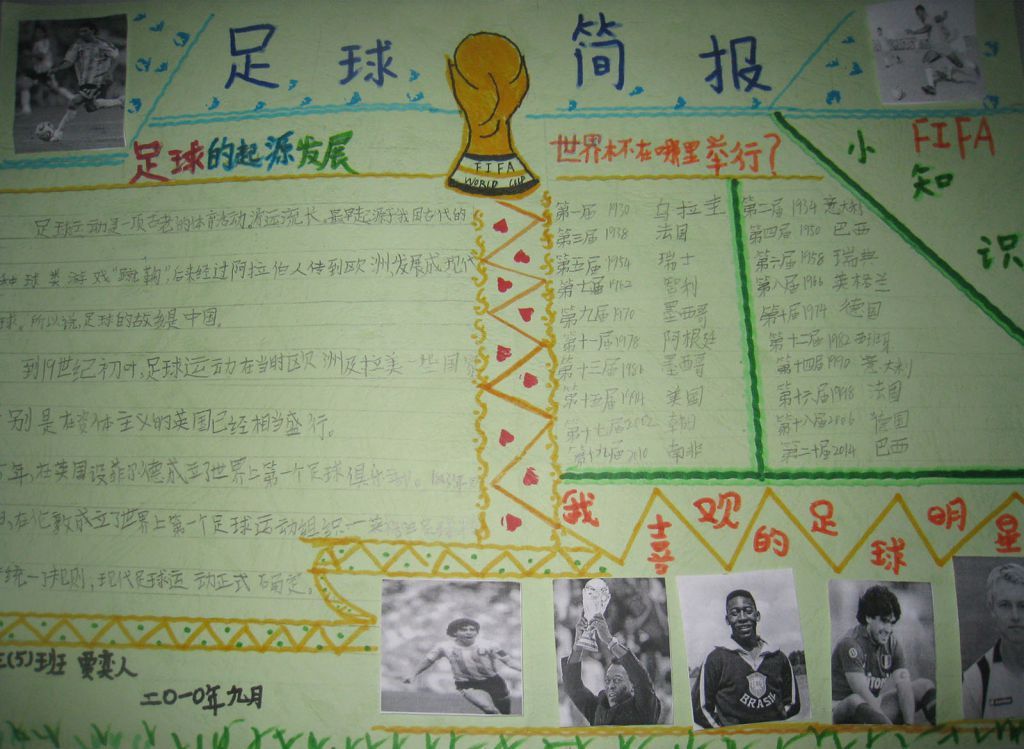 足球简报
足球的起源发展
FIFA
WORLD CUP
世界杯在哪里举行?
小
FIFA
知
识
足球运动是一项古老的体育活动,源远流长,最早起源于我国古代的
种球类游戏"蹴鞠",后来经过阿拉伯人传到欧洲发展成现代
球。所以说,足球的故乡是中国。
到19世纪初叶,足球运动在当时欧洲及拉美一些国家
别是在资本主义的英国已经相当盛行。
年,在英国设菲尔德成立了世界上第一个足球俱乐部。1863年
在伦敦成立了世界上第一个足球运动组织一英
统一了规则,现代足球运动正式确定。
第一届 1930 乌拉圭 第二届 1934 意大利
第三届 1938 法国 第四届 1950 巴西
第五届 1954 瑞士 第六届 1958 瑞典
第七届 1962 智利 第八届 1966 英格兰
第九届 1970 墨西哥 第十届 1974 德国
第十一届 1978 阿根廷 第十二届 1982 西班牙
第十三届 1986 墨西哥 第十四届 1990 意大利
第十五届 1994 美国 第十六届 1998 法国
第十七届 2002 韩日 第十八届 2006 德国
第十九届 2010 南非 第二十届 2014 巴西
我喜欢的足球明星
BRASIL
(5)班
二〇一〇年九月